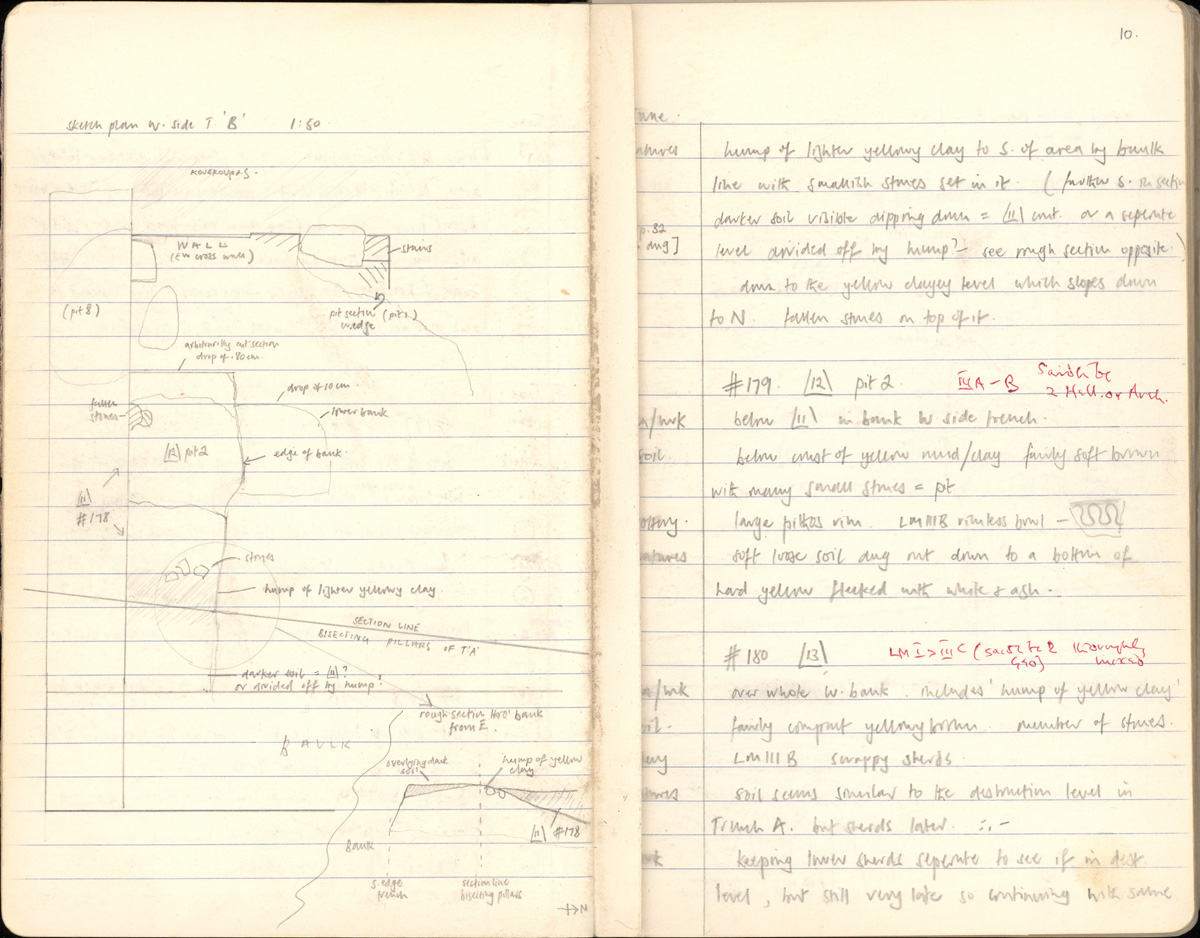 sketch plan W. side T. 'B' 1:50
WALL
(EW cross wall)
stairs
(pit 8)
pit section (pit 1.)
wedge
arbitrarily cut section
drop of .80cm.
drop of 10cm.
lower bank
fallen
stones
/12\ pit 2
edge of bank.
/11\
#178
stones
hump of lighter yellowy clay
SECTION LINE
BISECTING PILLARS OF T'A'
darker soil = /11\?
or divided off by hump?
rough section thro' bank
from E.
BAULK
overlying dark
soil
hump of yellow
clay
/11\ #178
Bank
S. edge
trench
section line
bisecting pillars
N
10.
une.
atures
hump of lighter yellowy clay to S. of area by baulk
line with smallish stones set in it. (further S. in section
p.32
darker soil visible dipping down = /11\ cont. or a seperate
dug]
level divided off by hump? - see rough section opposite.)
down to the yellow clayey level which slopes down
to N. fallen stones on top of it.
#179 /12\ pit 2. IIIA-B
2 Hell. or Arch.
a/wk below /11\ in bank W side trench.
soil. below crust of yellow mud/clay fairly soft brown
with many small stones = pit
ottery. large pithos rim. LMIIIB rimless bowl -
atures soft loose soil dug out down to a bottom of
hard yellow flecked with white & ash.
#180 /13\ LM I > III C (
thoroughly
mixed
a/wk over whole W. bank. includes 'hump of yellow clay'
oil. fairly compact yellowy brown. number of stones.
ery LMIIIB scrappy sherds.
atures soil seems similar to the destruction level in
Trench A. but sherds later. :. -
wk keeping lower sherds seperate to see if in dest
level, but still very late so continuing with same